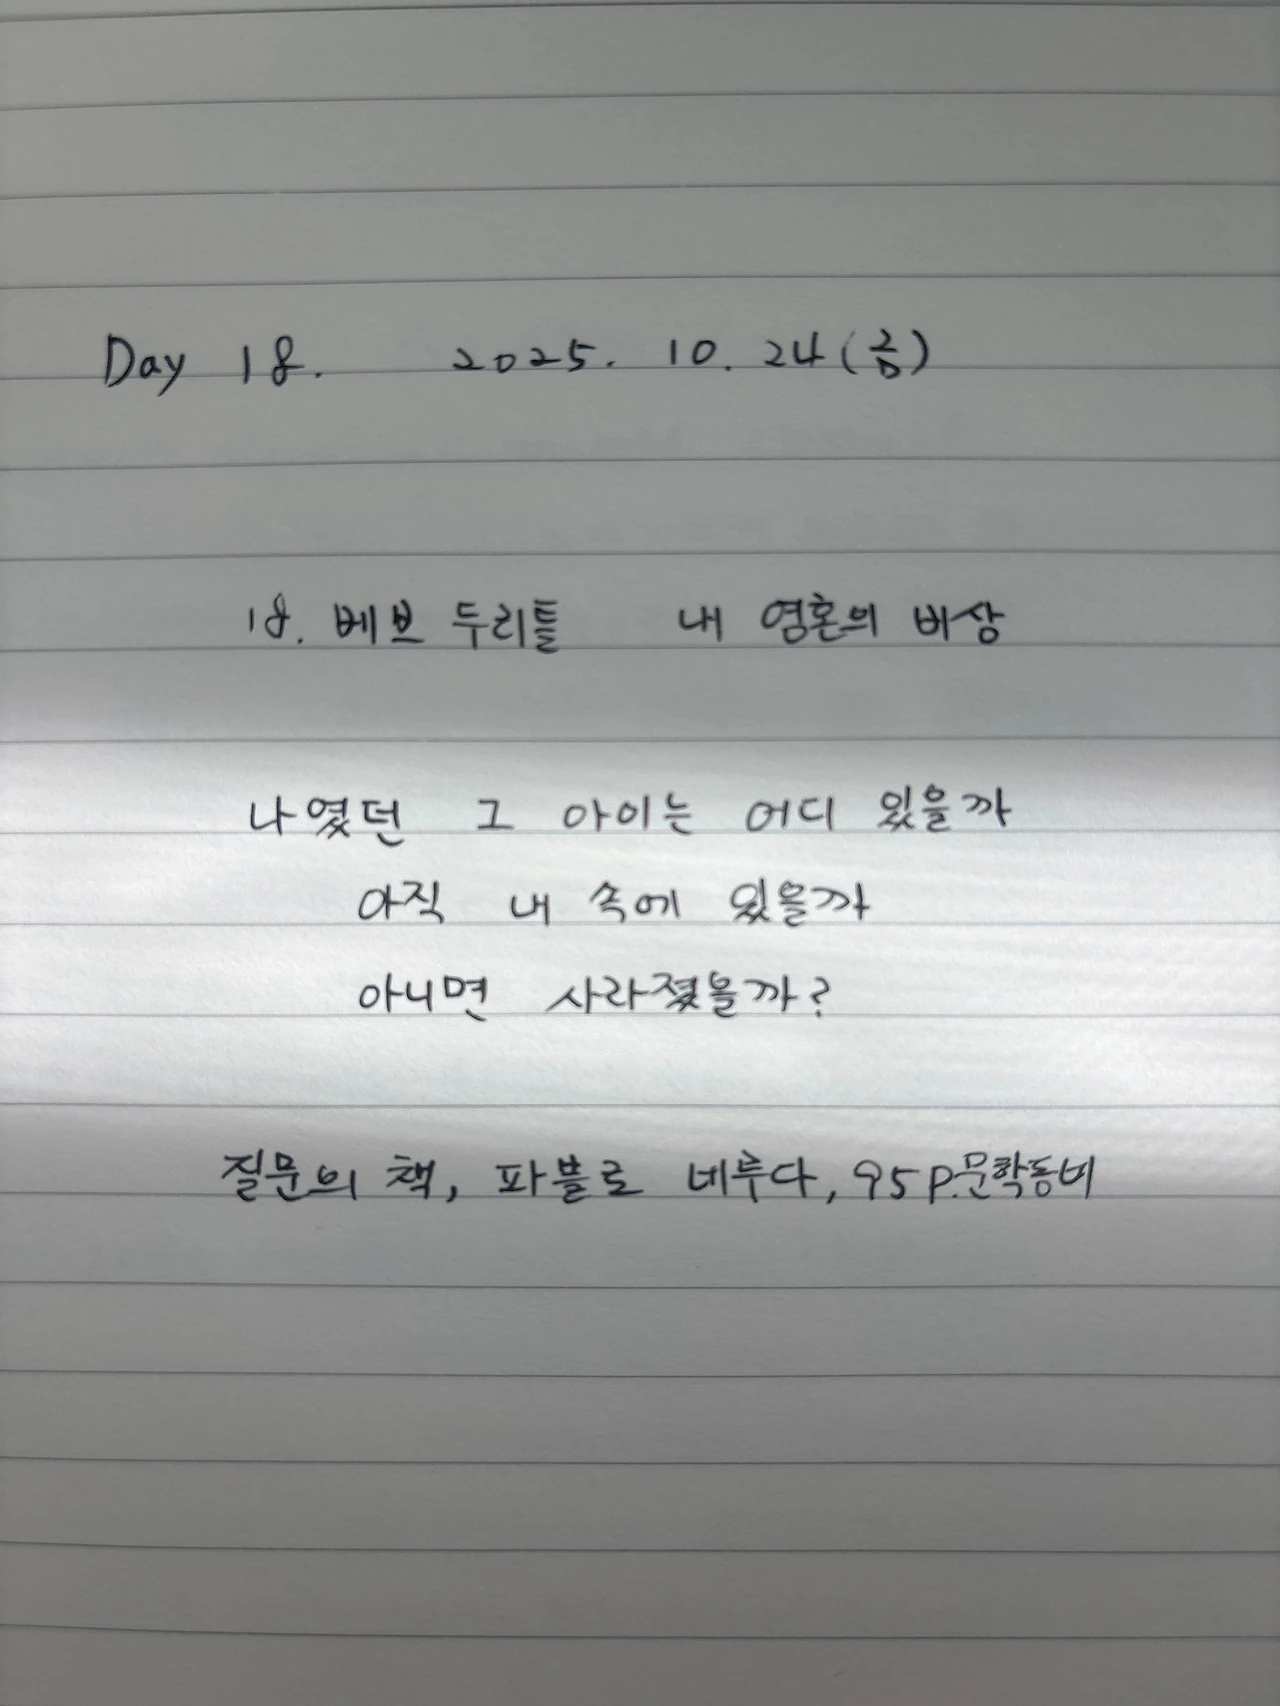 Day 18. 2025. 10. 24(금)
18. 베브 두리틀 내 영혼의 비상
나였던 그 아이는 어디 있을까
아직 내 속에 있을까
아니면 사라졌을까?
질문의 책, 파블로 네루다, 95p.문학동네